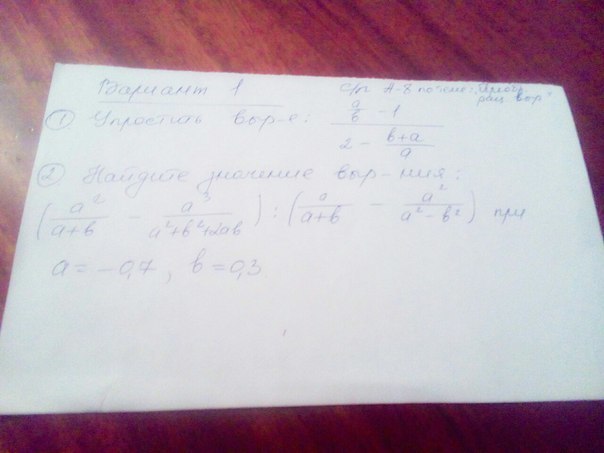 Вариант 1
с/р А-8 по теме: "Преобр. рац. выр."
① Упростить выр-е: (a/b - 1)/(2 - (b+a)/a)
② Найдите значение выр-ния:
(a²/(a+b) - a³/(a²+b²+2ab)) : (a/(a+b) - a²/(a²-b²)) при
a = -0,7, b = 0,3